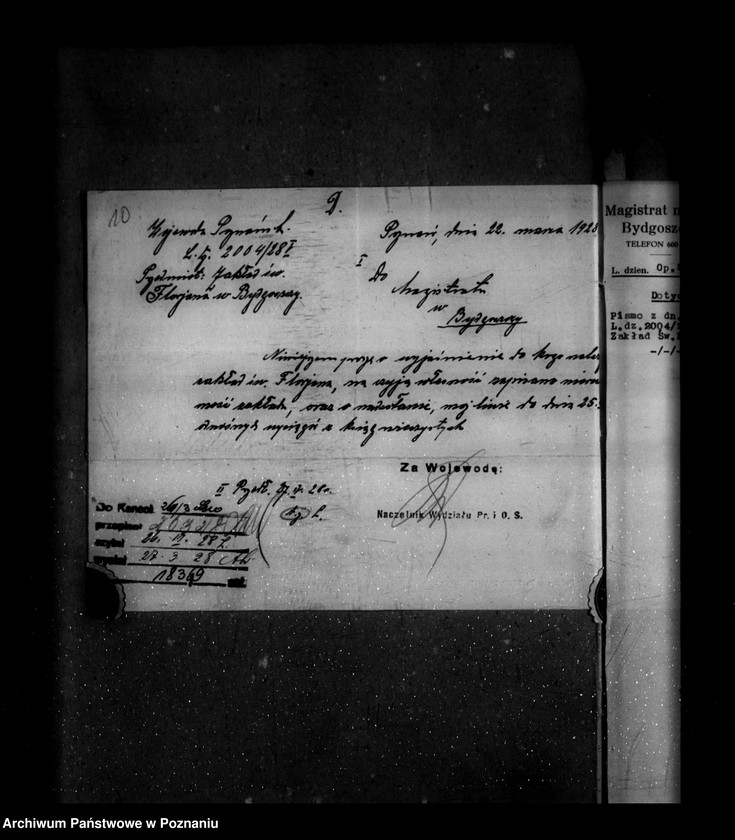 10
2.
Wojewoda Poznański.
L. dz. 2004/28 I
Przedmiot: Zakład św.
Florjana w Bydgoszczy.
Poznań, dnia 22. marca 1928
I
Do
Magistratu
w
Bydgoszczy
Niniejszem proszę o wyjaśnienie do kogo należ
zakład św. Florjana, na czyją własność zapisano nieru
mość zakładu, oraz o nadesłanie, do dnia 25.
wyciągu z ksiąg wieczystych
Za Wojewodę:
Naczelnik Wydziału Pr. i O. S.
II
Do Kancel. 26/3
przepisano
czytał
27. 3 28
18369
Magistrat m
Bydgoszc
TELEFON 600
L. dzien. Op.
Dotyc
Pismo z dn.
L.dz.2004/
Zakład Św.
-/-/-
Archiwum Państwowe w Poznaniu